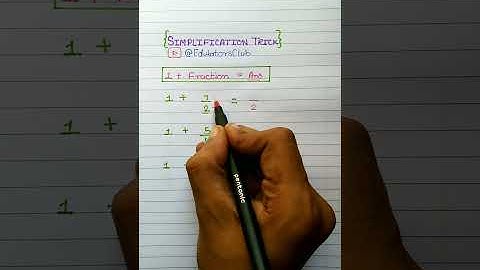 {SIMPLIFICATION TRICK}
@EduatorsClub
1 + Fraction = Ans
1 + 7/2 = /2
1 + 5/
1
1 +
1 +
pentonic